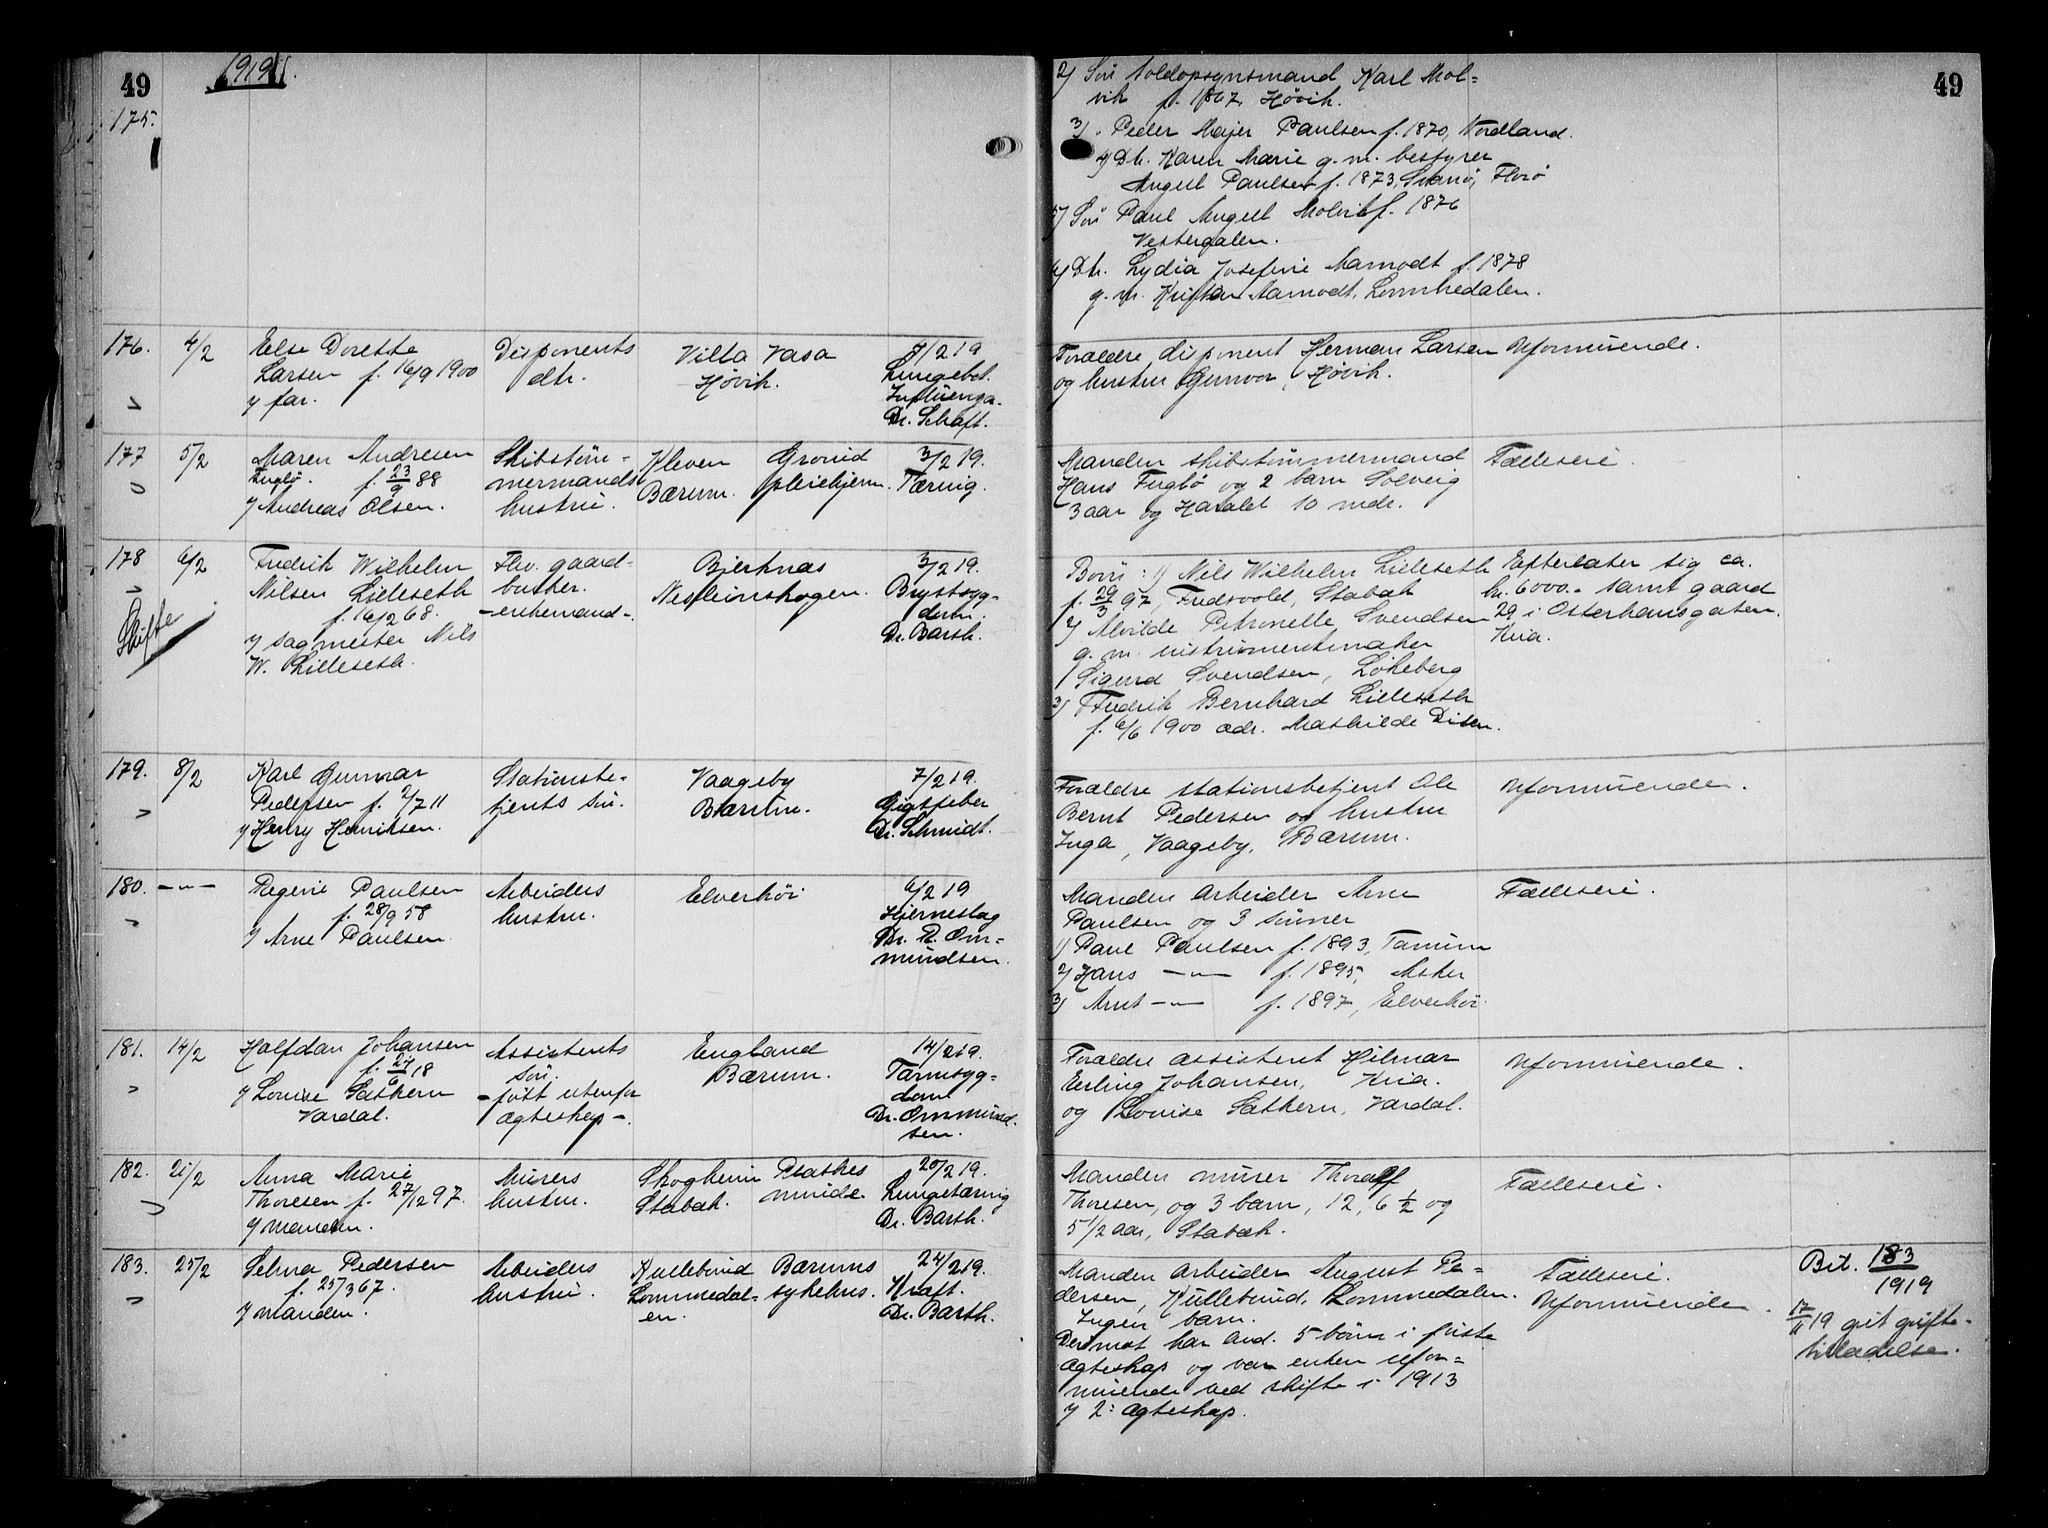 49
1919.
175.
2) Søn Toldopsynsmand Karl Mol=
vik f. 1867, Høvik.
3) Peder Mejer Paulsen f. 1870, Nordland.
4) Dtr. Karen Marie g.m. bestyrer
August Paulsen f. 1873, Svanø, Florø
5) Søn Paul August Molvik f. 1876
Vesteraalen.
6) Dtr. Lydia Josefine Aamodt f. 1878
g.m. Kristian Aamodt, Lommedalen.
49
176. 4/2
Else Dorette
Larsen f. 16/9 1900
v/ far.
Disponents
dtr.
Villa Vasa
Høvik.
4/2 19
Lungebet.
Influenza.
Dr. Schaft.
Forældre, disponent Herman Larsen
og hustru Gunvor, Høvik.
Uformuende.
177 5/2
Maren Andresen
Fuglø. f. 23/9 88
v/ Andreas Olsen.
Skibstøm=
mermands
hustru.
Kleven
Bærum.
Grorud
pleiehjem.
3/2 19.
Tæring.
Manden skibstømmermand
Hans Fuglø og 2 barn Solveig
3 aar og Harald 10 mdr.
Fælleseie.
178 6/2
Skifte
Fredrik Wilhelm
Nilsen Lilleseth
f. 16/2 68.
v/ sagmester Nils
W. Lilleseth.
Fhv. gaard-
bruker.
-enkemand-.
Bjerknæs
Nesleinskogen.
3/2 19.
Brystsyg-
dom.
Dr. Barth.
Børn: 1) Nils Wilhelm Lilleseth
f. 29/3 97, Fredsvold, Stabæk
2) Alvilde Petronelle Svendsen
g.m. instrumentmaker
Sigurd Svendsen, Løkeberg
3) Fredrik Bernhard Lilleseth
f. 6/6 1900 adr. Mathilde Disen.
Efterlater sig ca.
kr. 6000.- samt gaard
29 i Osterhausgaten.
Kria.
179. 8/2
Karl Gunnar
Pedersen f. 2/7 11
v/ Henry Henriksen.
Stationsbe-
tjents søn.
Vaageby
Bærum.
7/2 19.
Gigtfeber
Dr. Schmidt.
Forældre stationsbetjent Ole
Bernt Pedersen og hustru
Inga, Vaageby, Bærum.
Uformuende.
180. -"-
Regine Paulsen
f. 28/9 58
v/ Arne Paulsen.
Arbeiders
hustru.
Elverhøi
6/2 19
Hjerneslag
Dr. R. Om=
mundsen.
Manden Arbeider Arne
Paulsen og 3 sønner
1) Paul Paulsen f. 1893, Tanum
2) Hans -"- f. 1895, Asker
3) Arnt -"- f. 1897, Elverhøi.
Fælleseie.
181. 14/2
Halfdan Johansen
f. 24/6 18
v/ Louise Sathern
Vardal.
Assistents
søn.
-født utenfor
ægteskap-.
England
Bærum.
14/2 19.
Tarmsyg=
dom
Dr. Ommund-
sen.
Forældre assistent Hilmar
Erling Johansen, Kria.
og Louise Sathern, Vardal.
Uformuende.
182. 21/2
Anna Marie
Thoresen f. 27/12 97.
v/ manden.
Murers
hustru.
Skogheim
Stabæk.
Præstes
minde
20/2 19.
Lungetæring
Dr. Barth.
Manden murer Thoralf
Thoresen, og 3 barn, 12, 6 1/2 og
5 1/2 aar, Stabæk.
Fælleseie.
183. 25/2
Selma Pedersen
f. 25/3 67.
v/ manden.
Arbeiders
hustru.
Kullebund
Lommedal=
en.
Bærums
sykehus.
24/2 19.
Kræft.
Dr. Barth.
Manden Arbeider August Pe=
dersen, Kullebund, Lommedalen.
Ingen barn.
Derimot har avd. 5 børn i første
ægteskap og var enken ufor=
muende ved skifte i 1913
v/ 2: ægteskap.
Fælleseie.
Uformuende.
Bil. 183/1919
17/11 19 git gifte=
tilladelse.